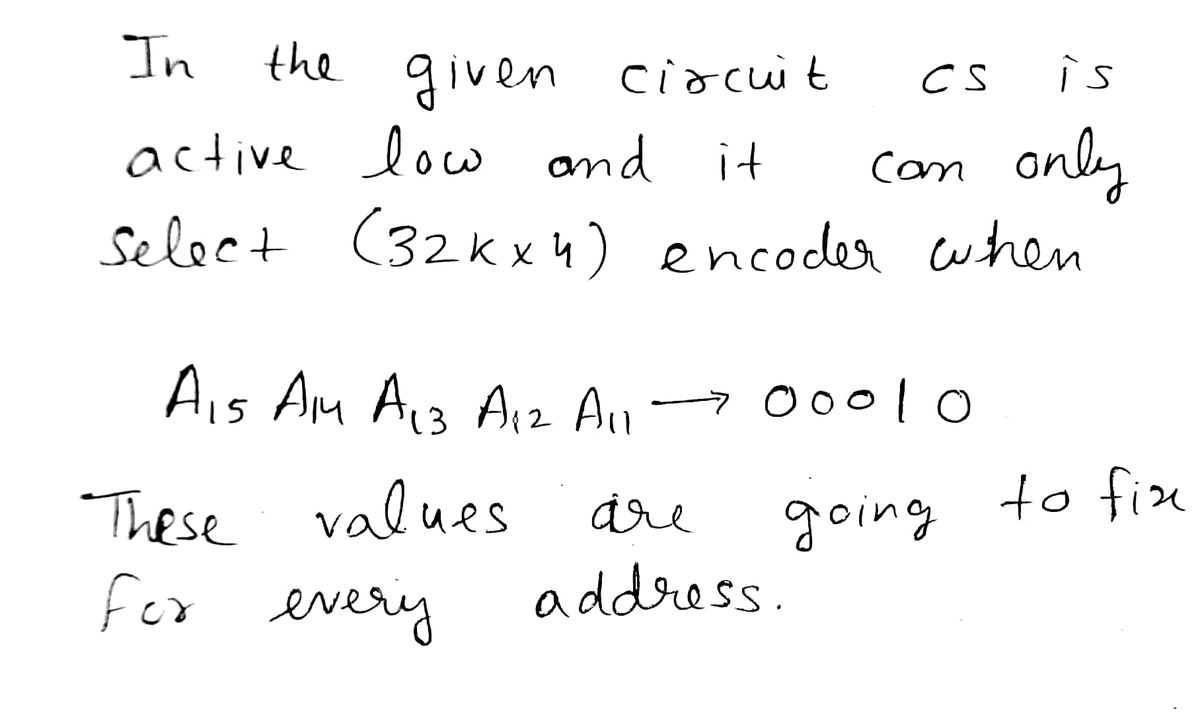 In the given circuit CS is
active low and it can only
select (32K x 4) encoder when
A15 A14 A13 A12 A11 → 00010
These values are going to fix
for every address.